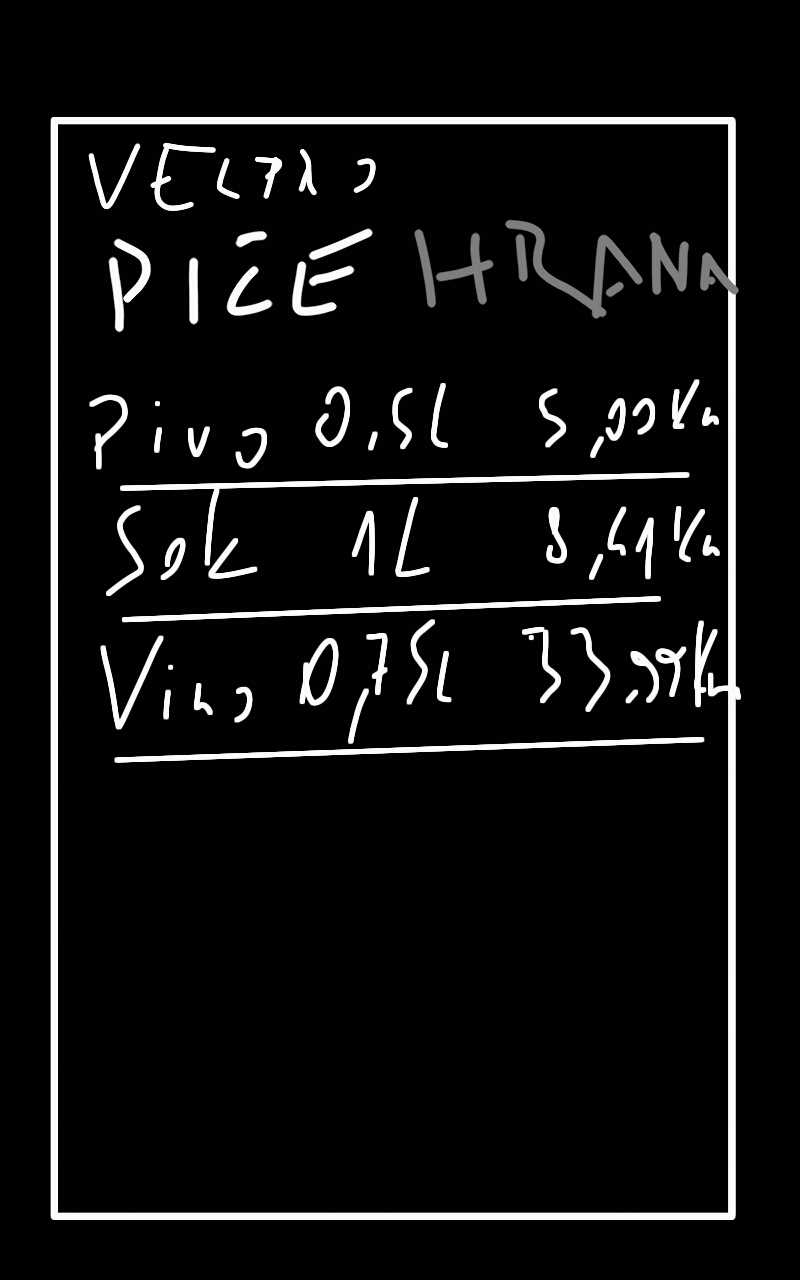 PIĆE HRANA
Pivo 0,5L 5,99Kn
Sok 1L 8,49Kn
Vino 0,75L 33,99Kn